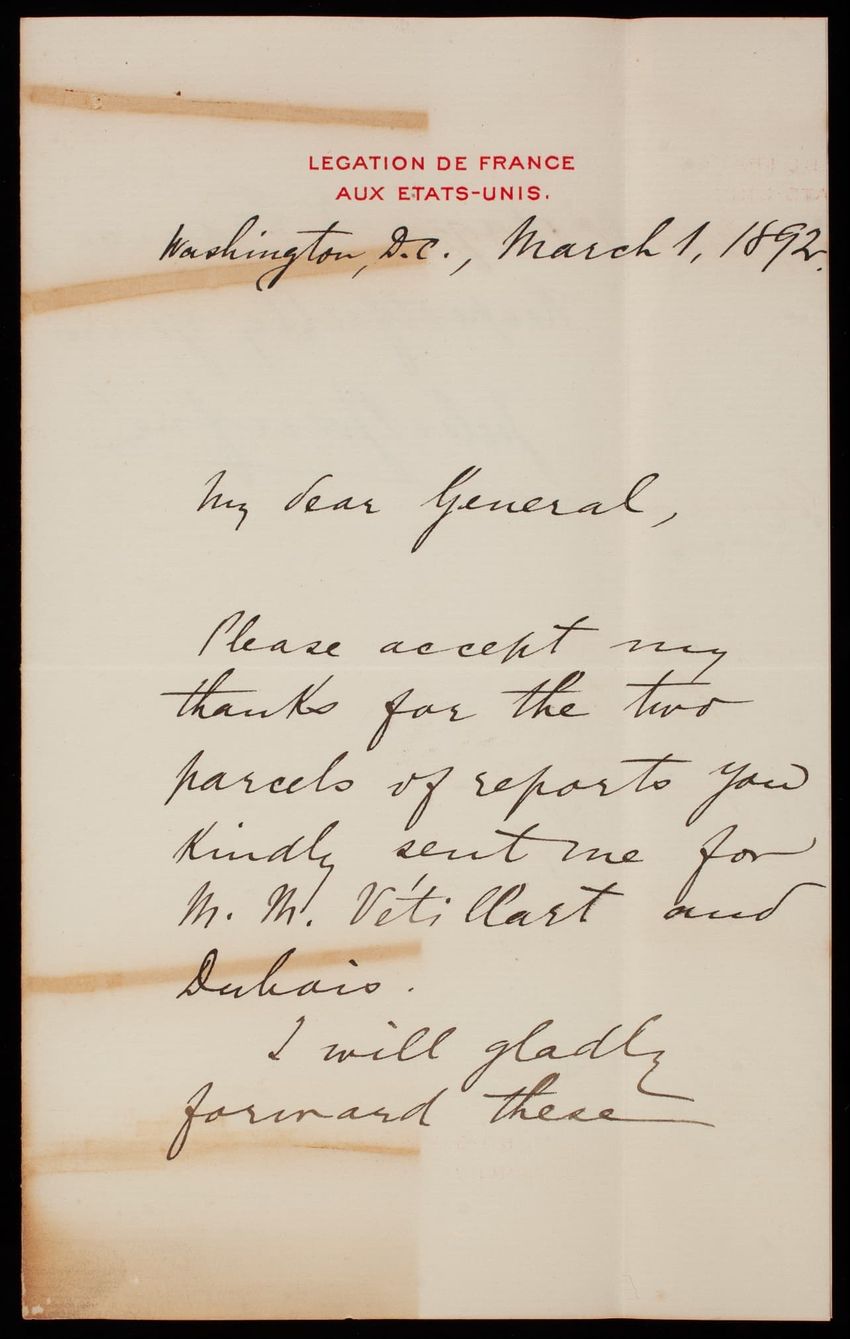 LEGATION DE FRANCE
AUX ETATS-UNIS.
Washington, D.C., March 1, 1892.
My dear General,
Please accept my
thanks for the two
parcels of reports you
kindly sent me for
M. M. Vétillart and
Dubois.
I will gladly
forward these